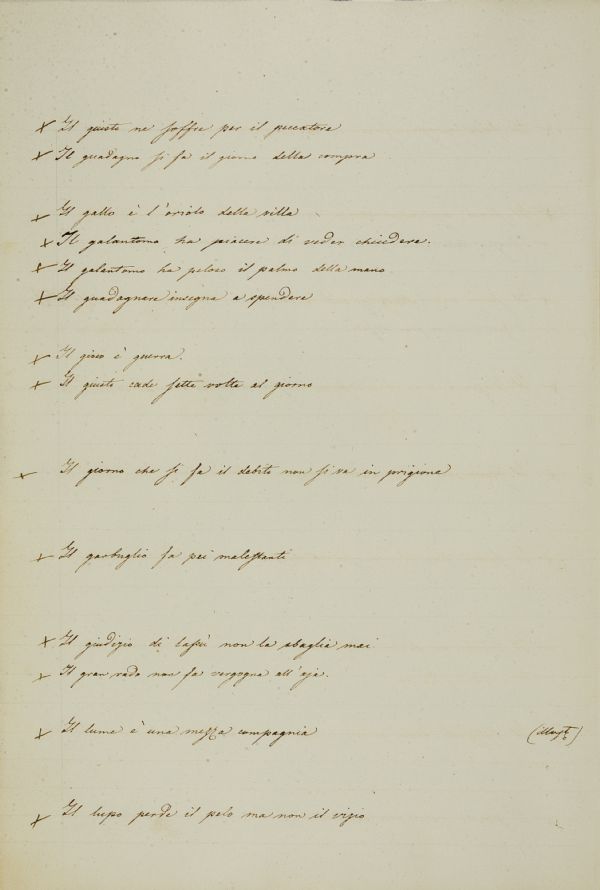 × Il giusto ne soffre per il peccatore
× Il guadagno si fa il giorno della compra
× Il gallo è l'oriolo della villa
× Il galantomo ha piacere di veder chiudere.
× Il galantomo ha peloso il palmo della mano
× Il guadagnare insegna a spendere
× Il gioco è guerra.
× Il giusto cade sette volte al giorno
× Il giorno che si fa il debito non si va in prigione
× Il garbuglio fa pei malestanti
× Il giudizio di lassù non la sbaglia mai
× Il gran rado non fa vergogna all'aja.
× Il lume è una mezza compagnia
× Il lupo perde il pelo ma non il vizio